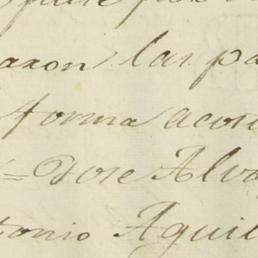 aron las pa
forma acor
= Jose Alva
tonio Aguil